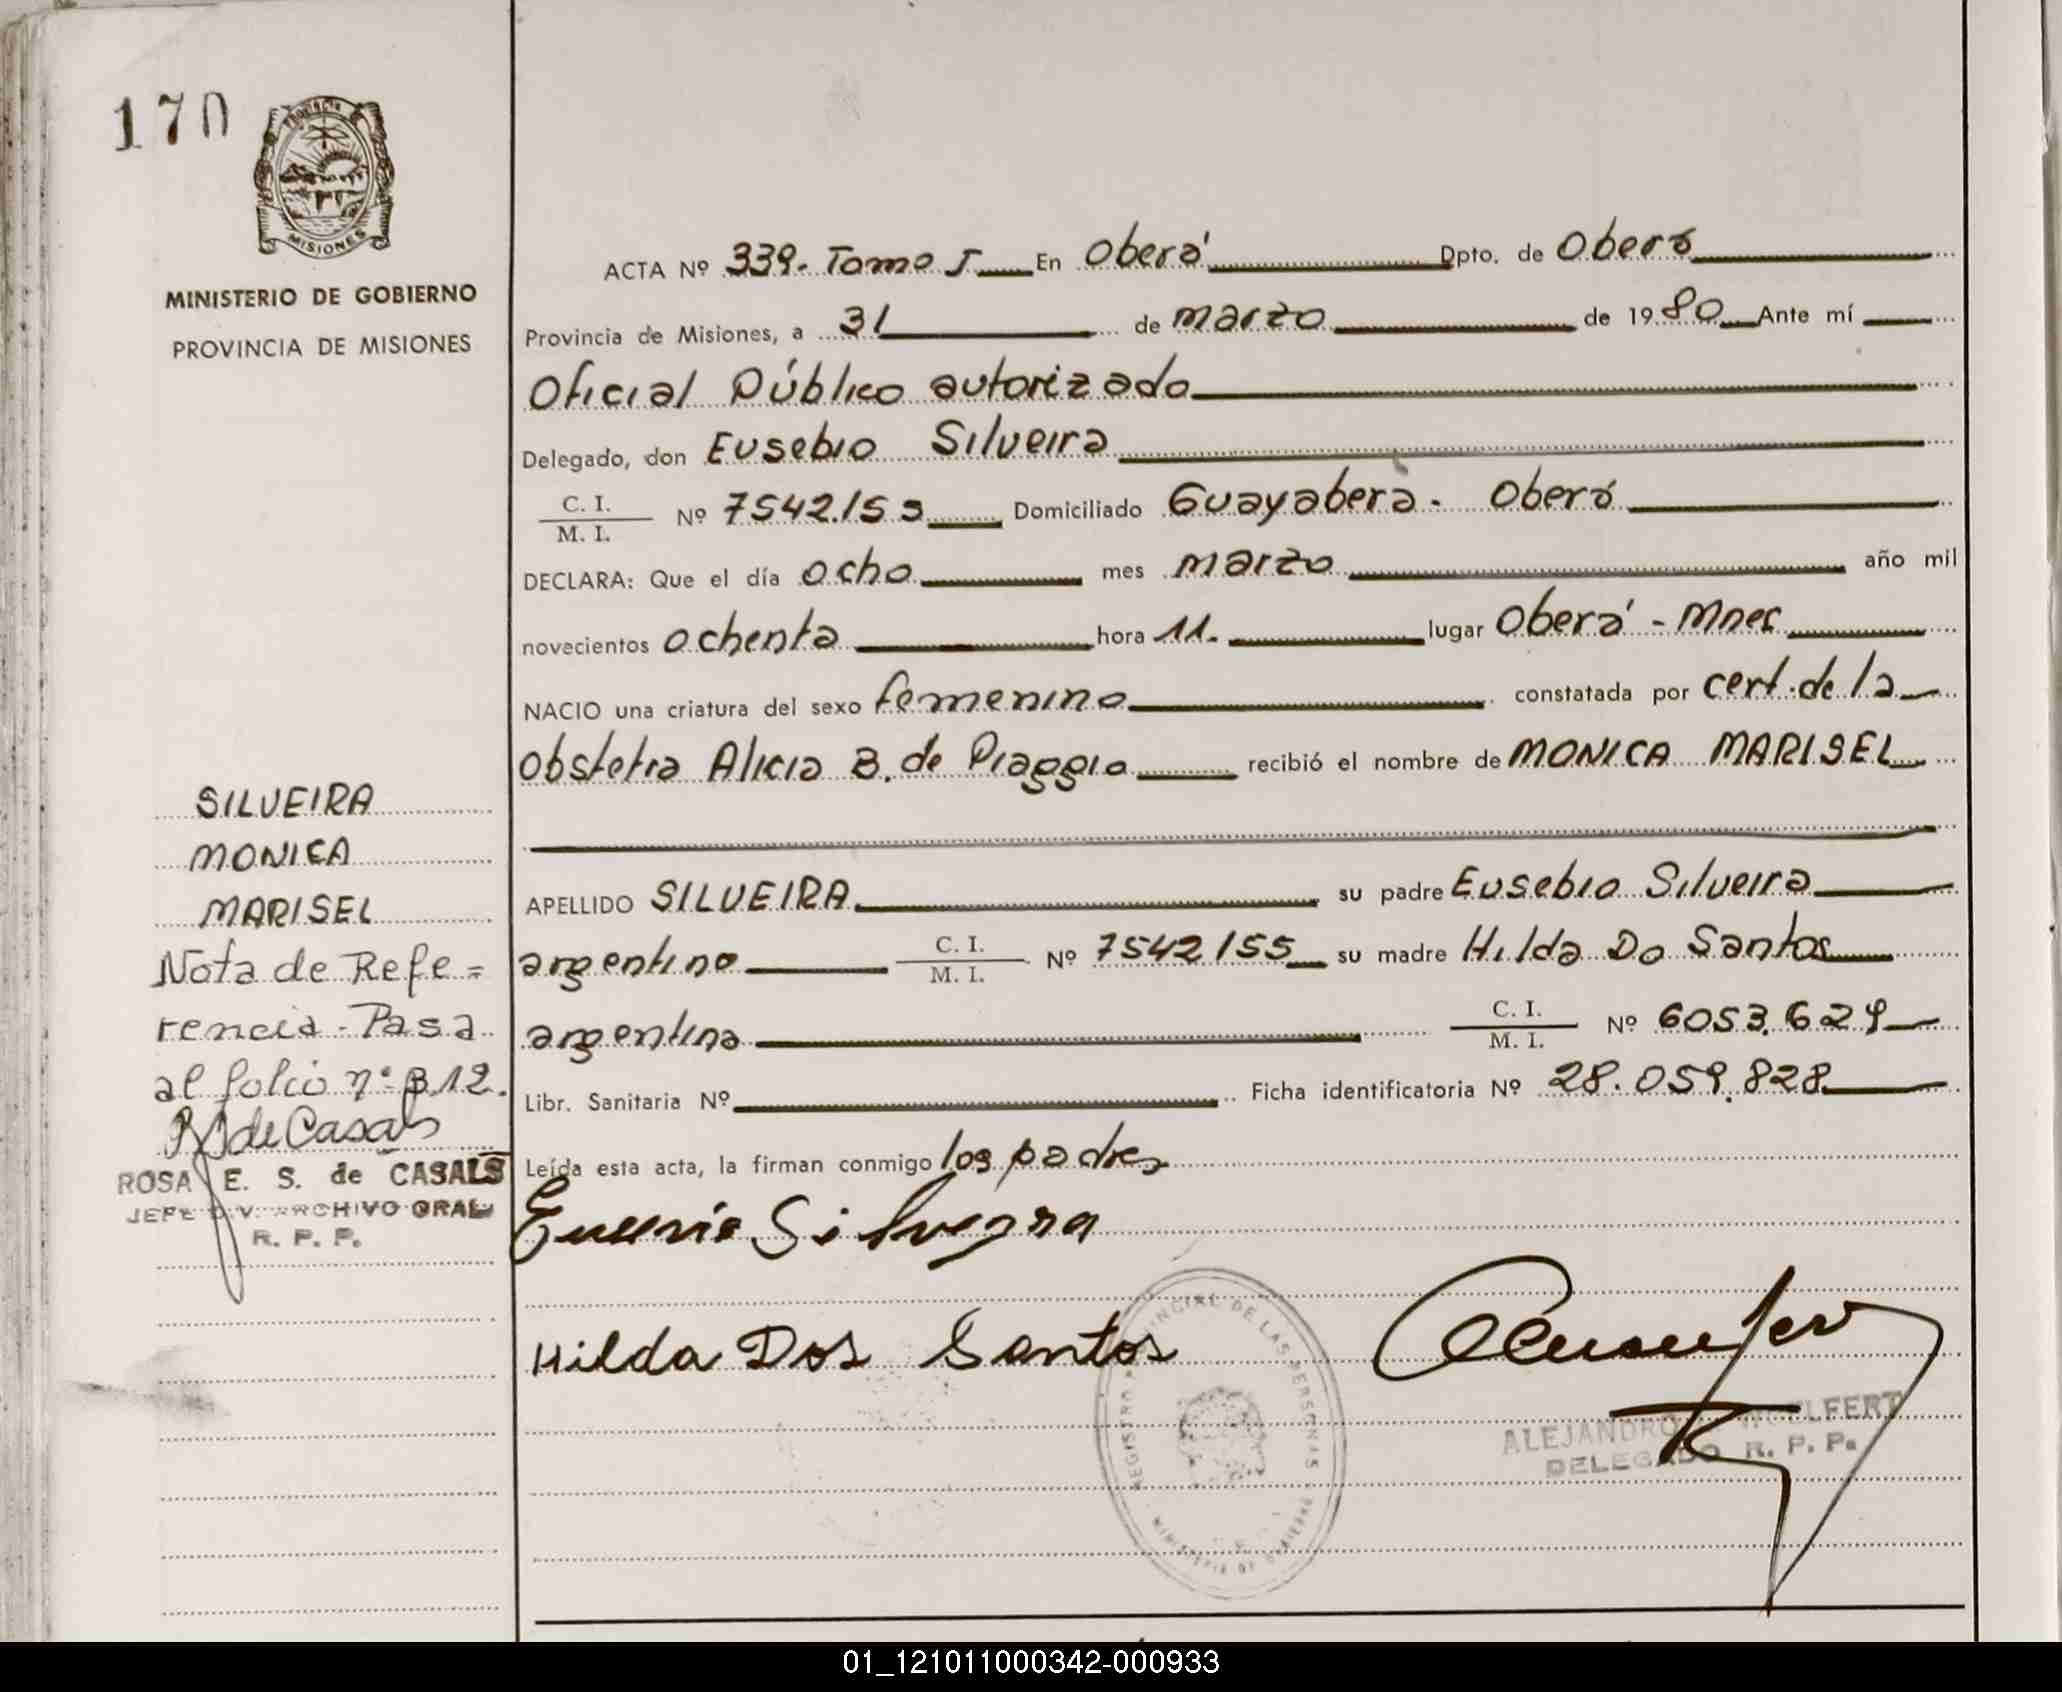 170
PROVINCIA
MISIONES
MINISTERIO DE GOBIERNO
PROVINCIA DE MISIONES
ACTA Nº 339. Tomo I En Oberá Dpto. de Oberá
Provincia de Misiones, a 31 de marzo de 1980 Ante mí
Oficial Público autorizado
Delegado, don Eusebio Silveira
C. I.
M. I. Nº 7542.155 Domiciliado Guayabera - Oberá
DECLARA: Que el día ocho mes marzo año mil
novecientos ochenta hora 11. lugar Oberá - Mnes
NACIO una criatura del sexo femenino constatada por cert. de la
Obstetra Alicia B. de Piaggio recibió el nombre de MONICA MARISEL
APELLIDO SILVEIRA su padre Eusebio Silveira
argentino C. I.
M. I. Nº 7542155 su madre Hilda Do Santos
argentina C. I.
M. I. Nº 6053.629
Libr. Sanitaria Nº Ficha identificatoria Nº 28.059.828
Leída esta acta, la firman conmigo los padres
Silveyra
Hilda Dos Santos
REGISTRO PROVINCIAL DE LAS PERSONAS
MINISTERIO DE GOBIERNO
ALEJANDRO WOELFERT
DELEGADO R. P. P.
SILVEIRA
MONICA
MARISEL
Nota de Refe=
rencia - Pasa
al folio nº 312.
R S de Casals
ROSA E. S. de CASALS
JEFE DIV. ARCHIVO GRAL
R. P. P.
01_121011000342-000933